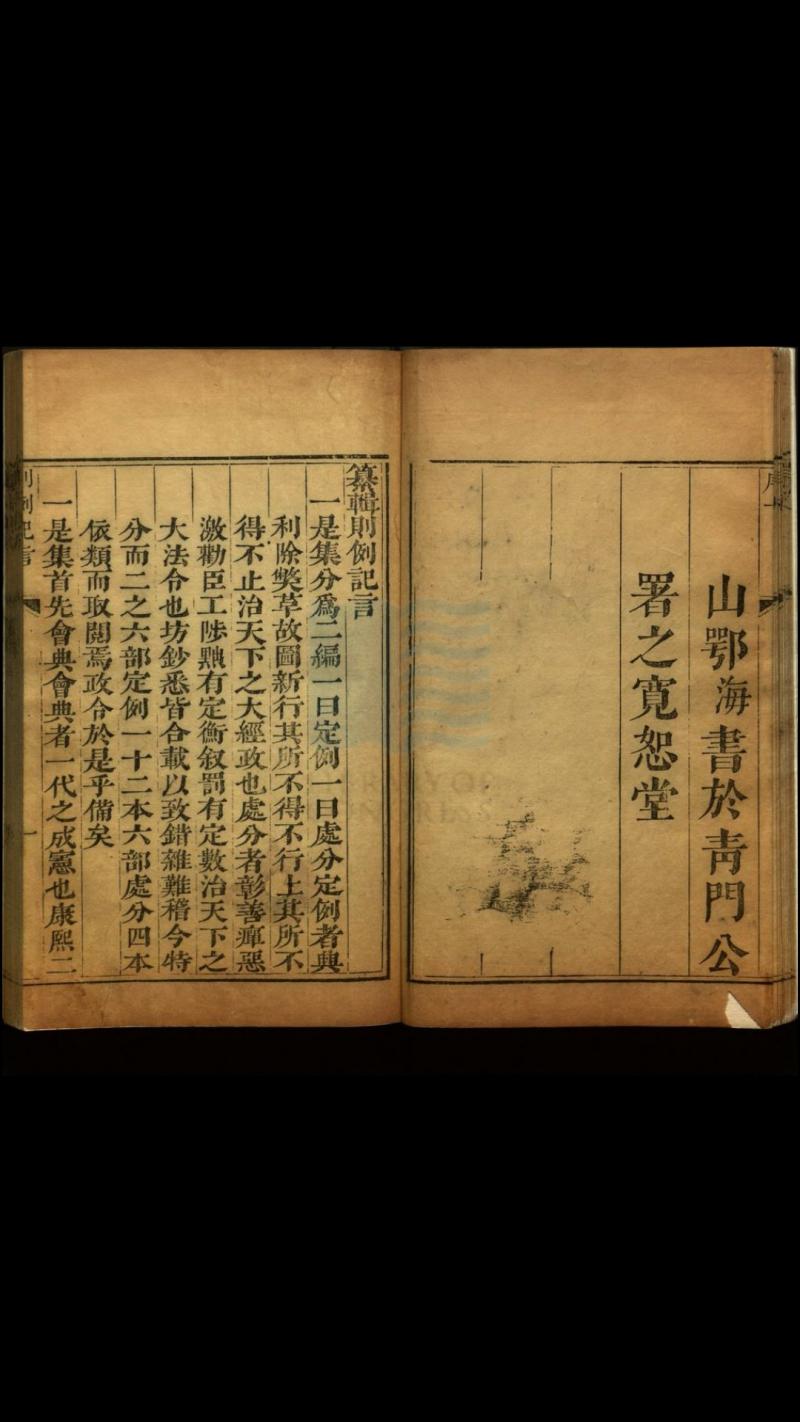 山鄂海書於青門公
署之寛恕堂
纂輯則例記言
一是集分為二編一曰定例一曰處分定例者典
利除獘革故圖新行其所不得不行止其所不
得不止治天下之大經政也處分者彰善癉惡
激勸臣工陟黜有定衡叙罰有定數治天下之
大法令也坊鈔悉皆合載以致錯雜難稽今特
分而二之六部定例一十二本六部處分四本
依類而取閱焉政令於是乎備矣
一是集首先會典會典者一代之成憲也康熙二
則例記言
一